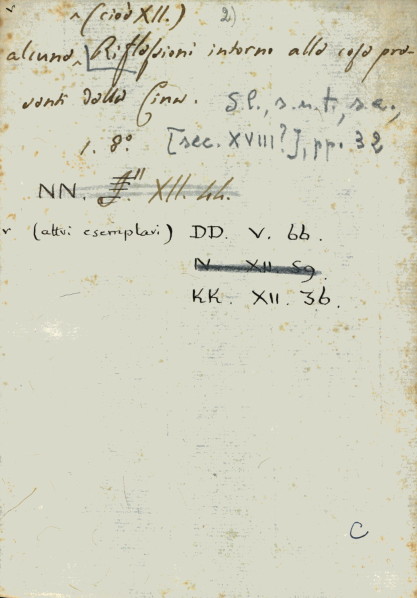 ^ (cioè XII.) 2)
alcune ^ Riflessioni intorno alle cose pre-
senti della Cina. S.l., s.n.t., s.a.,
1. 8º. [sec. XVIII?], pp. 32
NN. XII. 44.
v (altri esemplari) DD. V. 66.
N. XII. 59
KK. XII. 36.
C